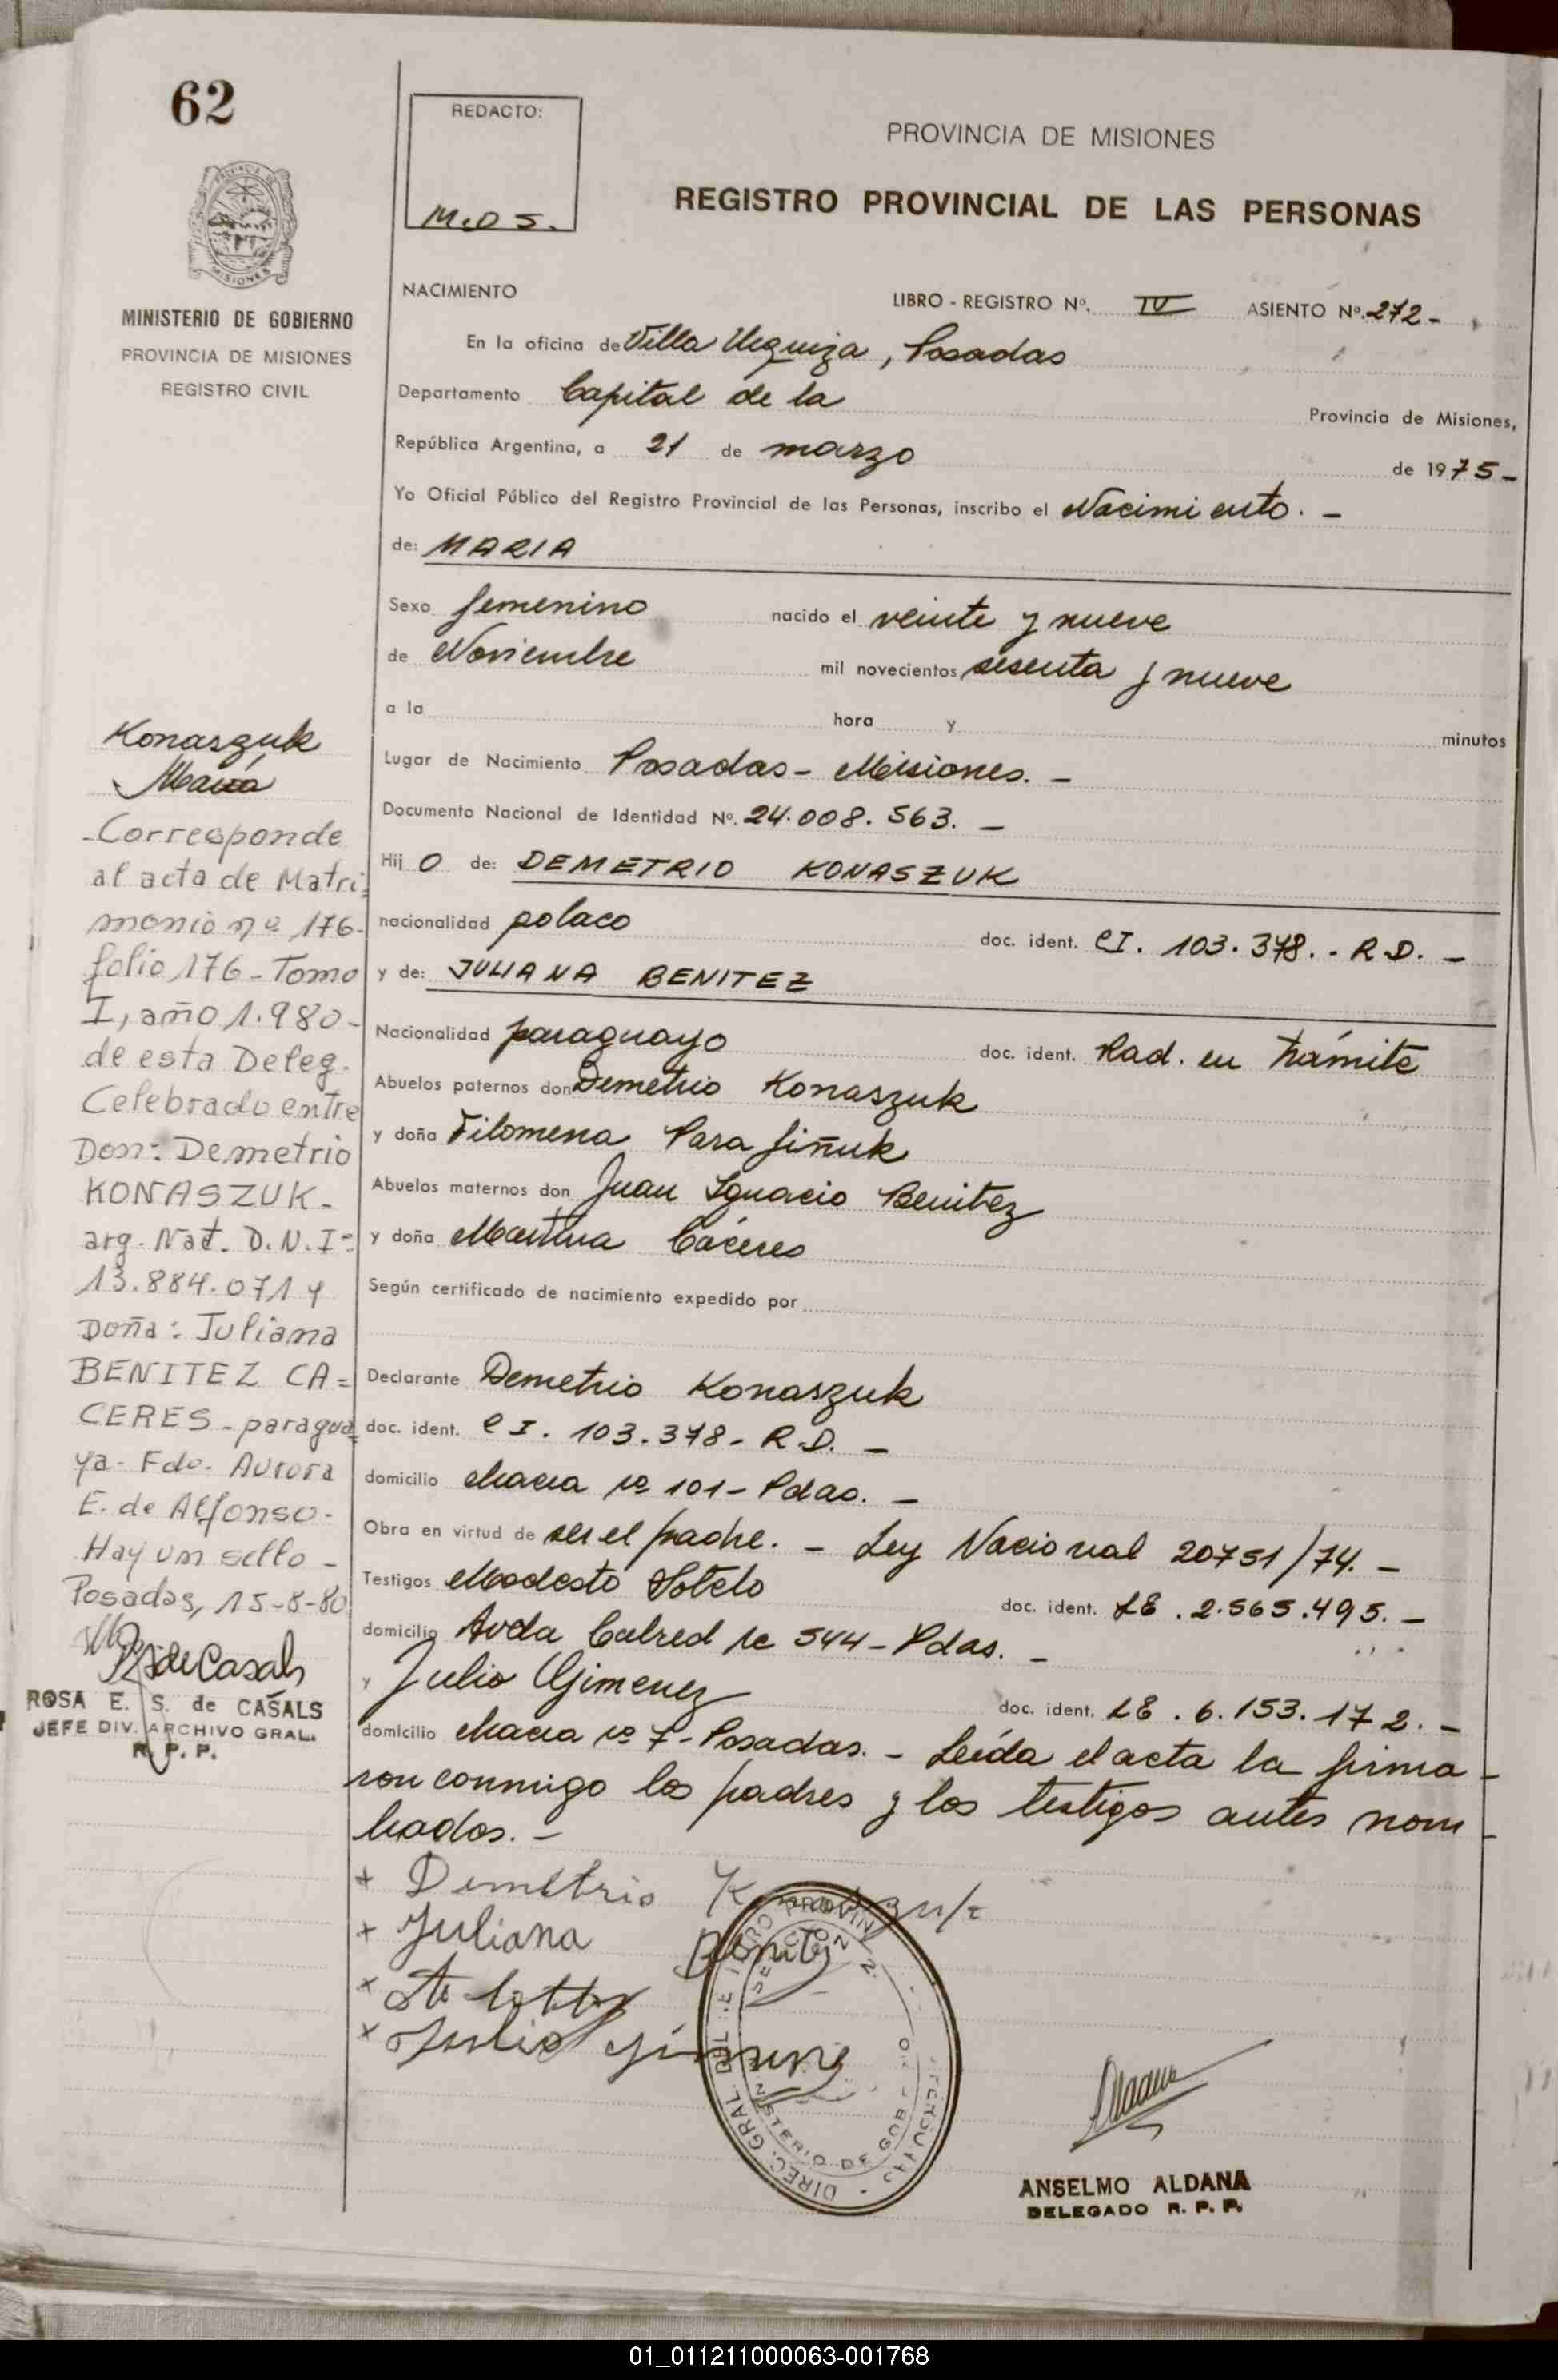 62
REDACTO:
M.D S.
PROVINCIA DE MISIONES
REGISTRO PROVINCIAL DE LAS PERSONAS
PROVINCIA DE
MISIONES
MINISTERIO DE GOBIERNO
PROVINCIA DE MISIONES
REGISTRO CIVIL
NACIMIENTO
LIBRO - REGISTRO Nº. IV ASIENTO Nº. 272 -
En la oficina de Villa Urquiza, Posadas
Departamento Capital de la Provincia de Misiones,
República Argentina, a 21 de marzo de 1975 -
Yo Oficial Público del Registro Provincial de las Personas, inscribo el Nacimiento. -
de: MARIA
Sexo femenino nacido el veinte y nueve
de Noviembre mil novecientos sesenta y nueve
a la hora y minutos
Lugar de Nacimiento Posadas - Misiones. -
Documento Nacional de Identidad Nº. 24.008.563. -
Hij O de: DEMETRIO KONASZUK
nacionalidad polaco doc. ident. CI. 103.378. - R.D. -
y de: JULIANA BENITEZ
Nacionalidad paraguayo doc. ident. Rad. en trámite
Abuelos paternos don Demetrio Konaszuk
y doña Filomena Parasiñuk
Abuelos maternos don Juan Ignacio Benitez
y doña Martina Cáceres
Según certificado de nacimiento expedido por
Declarante Demetrio Konaszuk
doc. ident. CI. 103.378 - R.D. -
domicilio chacra nº 101 - Pdas. -
Obra en virtud de ser el padre. - Ley Nacional 20751/74. -
Testigos Modesto Sotelo doc. ident. LE. 2.565.495. -
domicilio Avda Cabred nº 544 - Pdas. -
y Julio Gimenez doc. ident. LE. 6.153.172. -
domicilio chacra nº 7 - Posadas. - Leída el acta la firma-
ron conmigo los padres y los testigos antes nom-
brados. -
+ Demetrio Konaszuk
+ Juliana Benitez
x
x Julio Gimenez
Konaszuk
María
-Corresponde
al acta de Matri=
monio nº 176-
folio 176 - Tomo
I, año 1.980-
de esta Deleg.
Celebrado entre
Don: Demetrio
KONASZUK -
arg. Nat. D.N.I=
13.884.071 y
Doña: Juliana
BENITEZ CA=
CERES - paragua=
ya - Fdo. Aurora
E. de Alfonso -
Hay un sello -
Posadas, 15-8-80
RSdeCasals
ROSA E. S. de CASALS
JEFE DIV. ARCHIVO GRAL.
R. P. P.
DIREC. GRAL. DEL
PROVIN
MINISTERIO DE GOB
ANSELMO ALDANA
DELEGADO R. P. P.
01_011211000063-001768